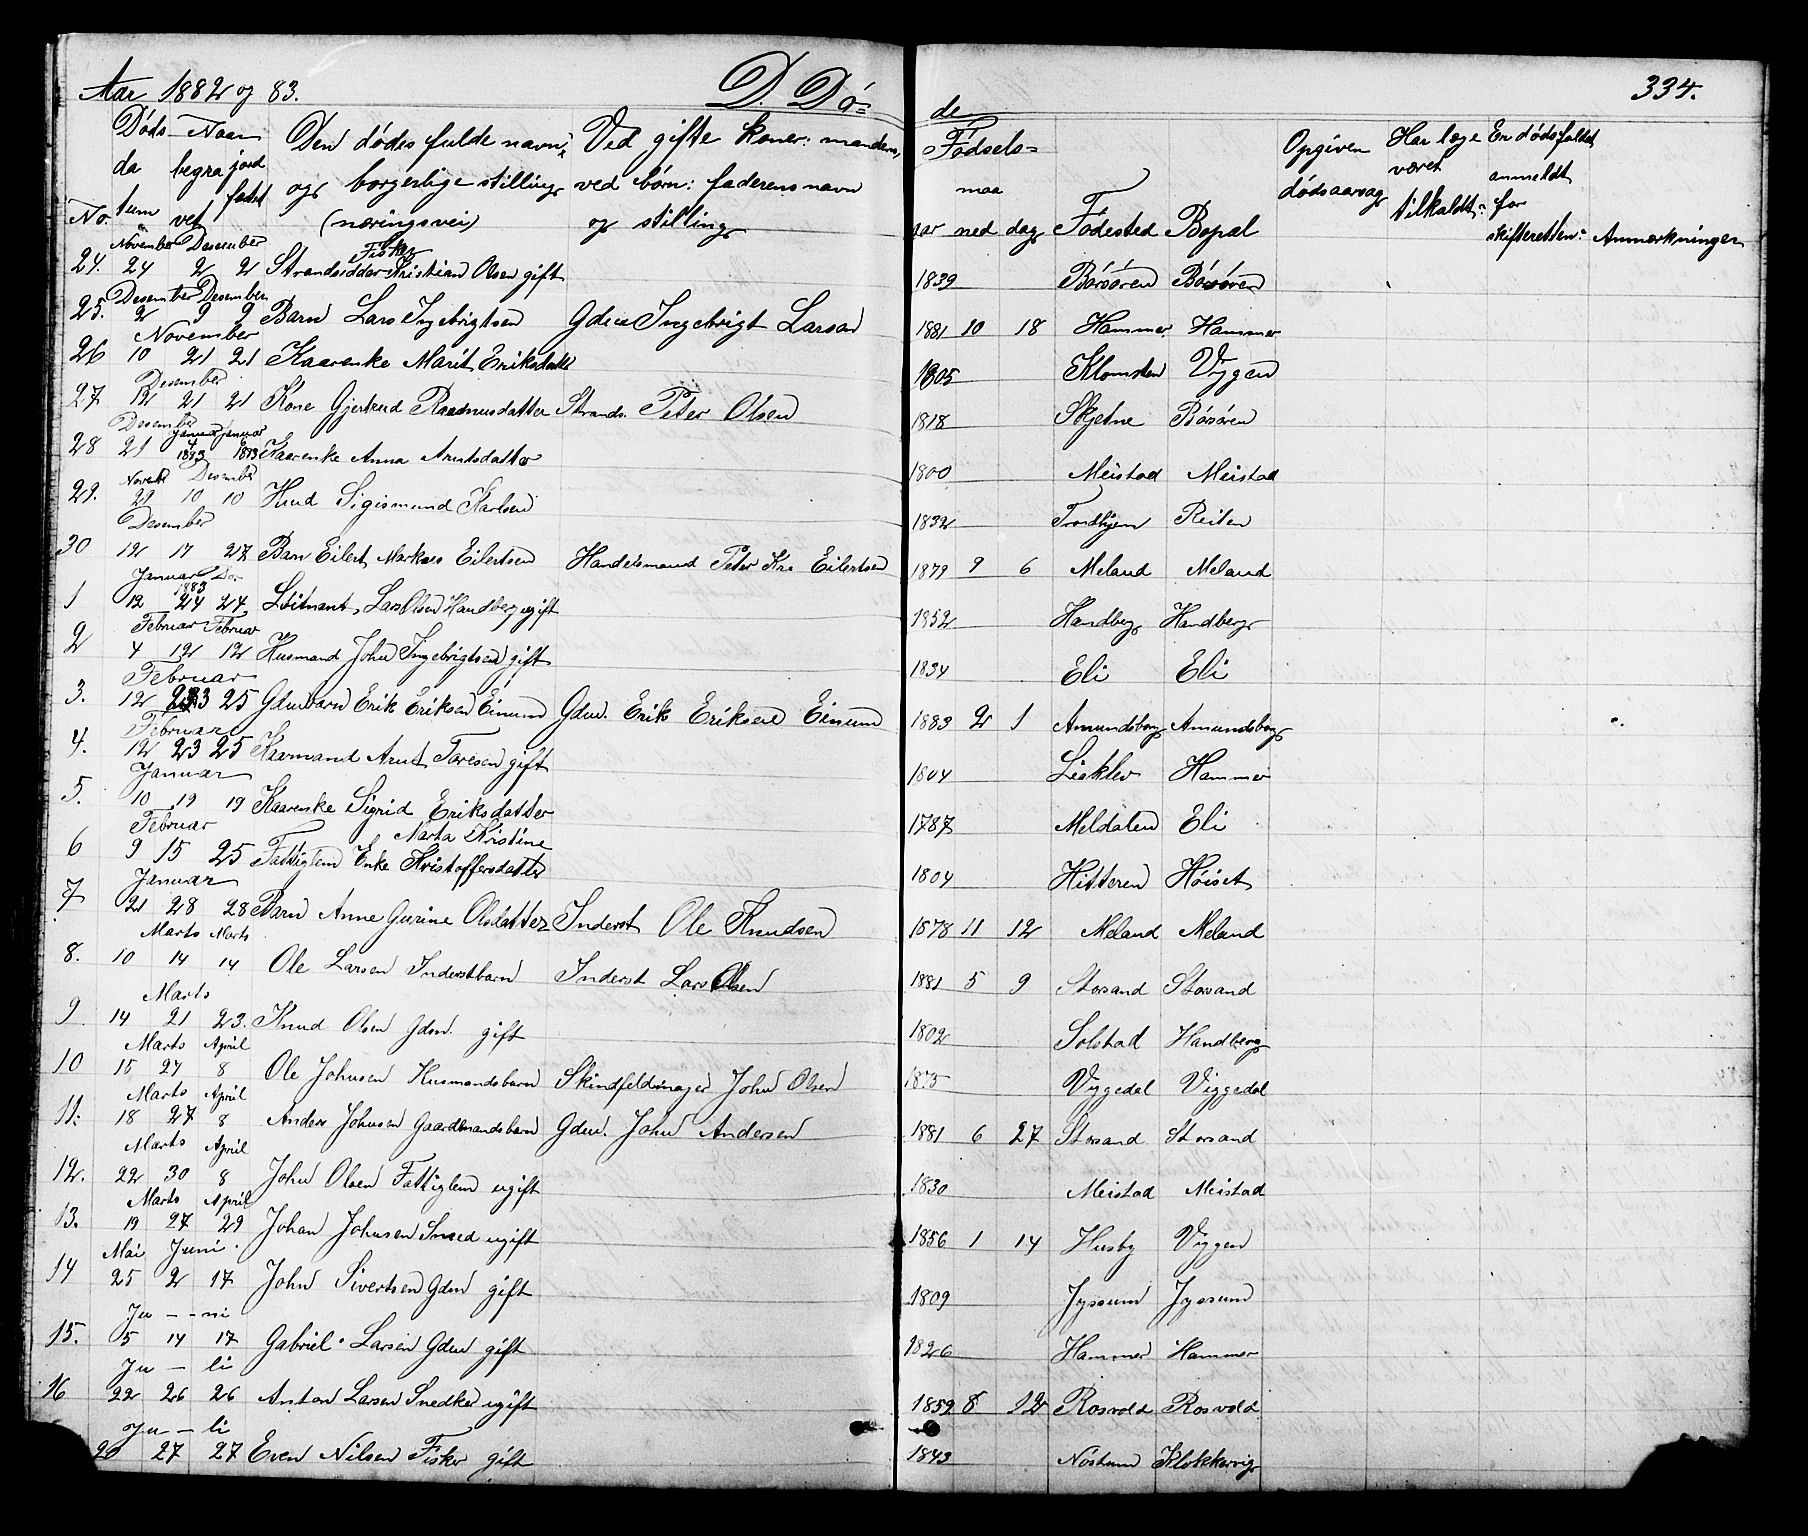 Aar 1882 og 83. D. Dø= de 334.
No. Dødsdatum Naar begravet jordfæstet Den dødes fulde navn og borgerlige stilling (næringsvei) Ved gifte koner: mandens, ved børn: faderens navn og stilling Fødsels= aar maaned dag Fødested Bopæl Opgiven dødsaarsag Har læge været tilkaldt: Er dødsfaldet anmeldt for skifteretten: Anmærkninger
November Desember Fisker
24. 24 2 2 Strandsidder Kristian Olsen gift 1839 Børsøren Børsøren
Desember Desember
25. 2 9 9 Barn Lars Ingebrigtsen Gdm Ingebrigt Larsen 1881 10 18 Hammer Hammer
November
26 10 21 21 Kaarenke Marit Eriksdatter 1805 Klomsten Viggen
Desember
27 12 21 21 Kone Gjertrud Rasmusdatter Strands. Peter Olsen 1818 Skjetne Børsøren
Desember Januar Januar
28 21 4 1883 1883 Kaarenke Anna Arntsdatter 1800 Meistad Meistad
Novemb Desember
29. 29 10 10 Huud Sigismund Karlsen 1832 Trondhjem Reiten
Desember
30 12 17 27 Barn Eilert Markus Eilertsen Handelsmand Peter Kr. Eilertsen 1879 9 6 Meland Meland
Januar Do 1883
1 12 24 24 Løitnant Lars Olsen Handberg ugift 1852 Handberg Handberg
Februar Februar
2 4 12 12 Husmand John Ingebrigtsen gift 1834 Eli Eli
Februar
3. 12 23 25 Gdmbarn Erik Eriksen Einum Gdm. Erik Eriksen Einum 1883 2 1 Amundsborg Amundsborg
Februar
4. 12 23 25 Kaarmand Arnt Toresen gift 1804 Lioklev Hammer
Januar
5. 10 19 19 Kaarenke Sigrid Eriksdatter 1787 Meldalen Eli
Februar Marta Kristine
6 9 15 25 Fattiglem Enke Kristoffersdatter 1804 Hitteren Høiset
Januar
7 21 28 28 Barn Anne Gurine Olsdatter Inderst Ole Knudsen 1878 11 12 Meland Meland
Marts Marts
8. 10 14 14 Ole Larsen Inderstbarn Inderst Lars Olsen 1881 5 9 Storsand Storsand
Marts
9 14 21 23. Knud Olsen Gdm. gift 1802 Solstad Handberg
Marts April
10 15 27 8 Ole Johnsen Husmandsbarn Skindfeldmager John Olsen 1875 Viggedal Viggedal
Marts April
11. 18 27 8 Anders Johnsen Gaardmandsbarn Gdm. John Andersen 1881 6 27 Storsand Storsand
Marts April
12. 22 30 8 John Olsen Fattiglem ugift 1830 Meistad Meistad
Marts April
13. 19 27 29 Johan Johnsen Smed ugift 1856 1 14 Husby Viggen
Mai Juni
14 25 2 17 John Sivertsen Gdm gift 1809 Jyssum Jyssum
Ju - - ni
15. 5 14 17 Gabriel Larsen Gdm gift 1826 Hammer Hammer
Ju - li
16 22 26 26 Anton Larsen Snedker ugift 1859 8 12 Rosvold Rosvold
Ju - li
20 27 27 Even Nilsen Fisker gift 1843 Nøstum Klokkervig